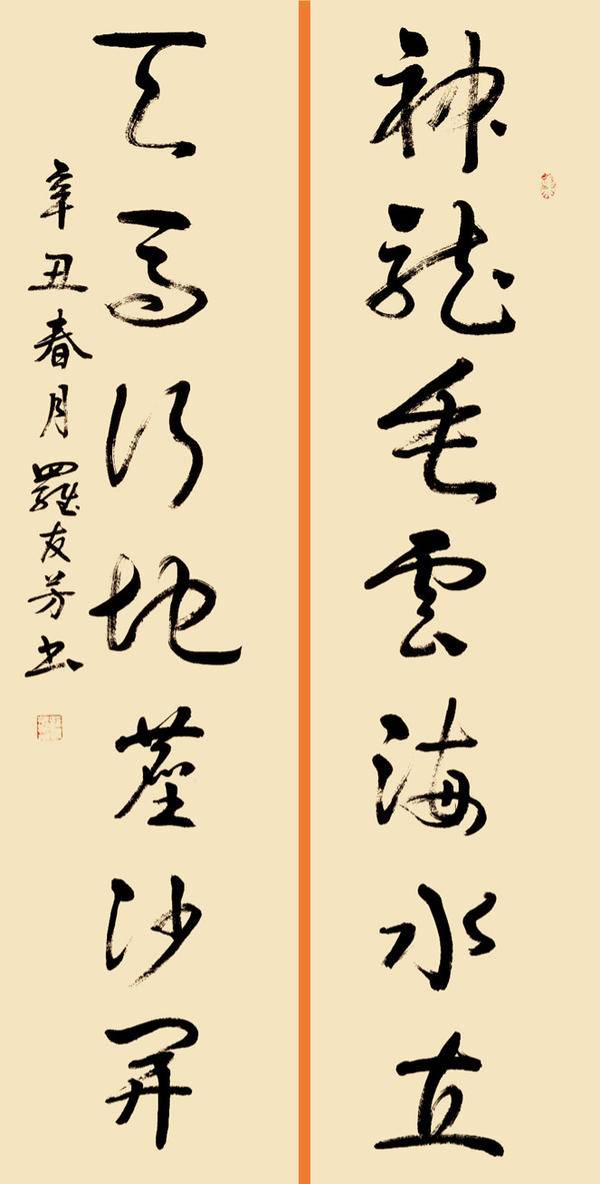 神龍垂雲海水直
天馬行地塵沙開
辛丑春月羅友芳书